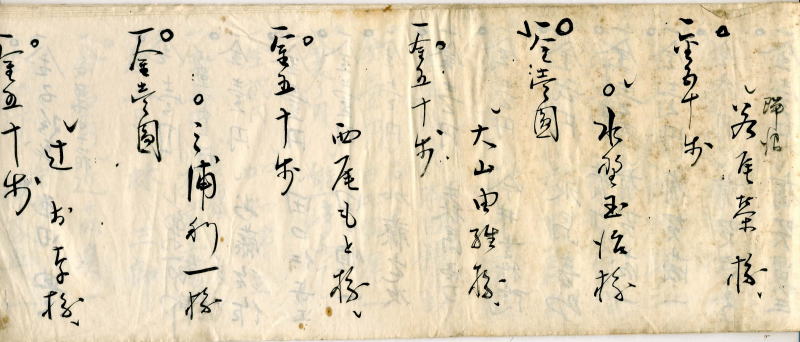 尾栄様
一金五十銭
水野玉治様
一金壱圓
大山由雄様
一金五十銭
西尾もと様
一金五十銭
三浦利一様
一金壱圓
辻お幸様
一金五十銭